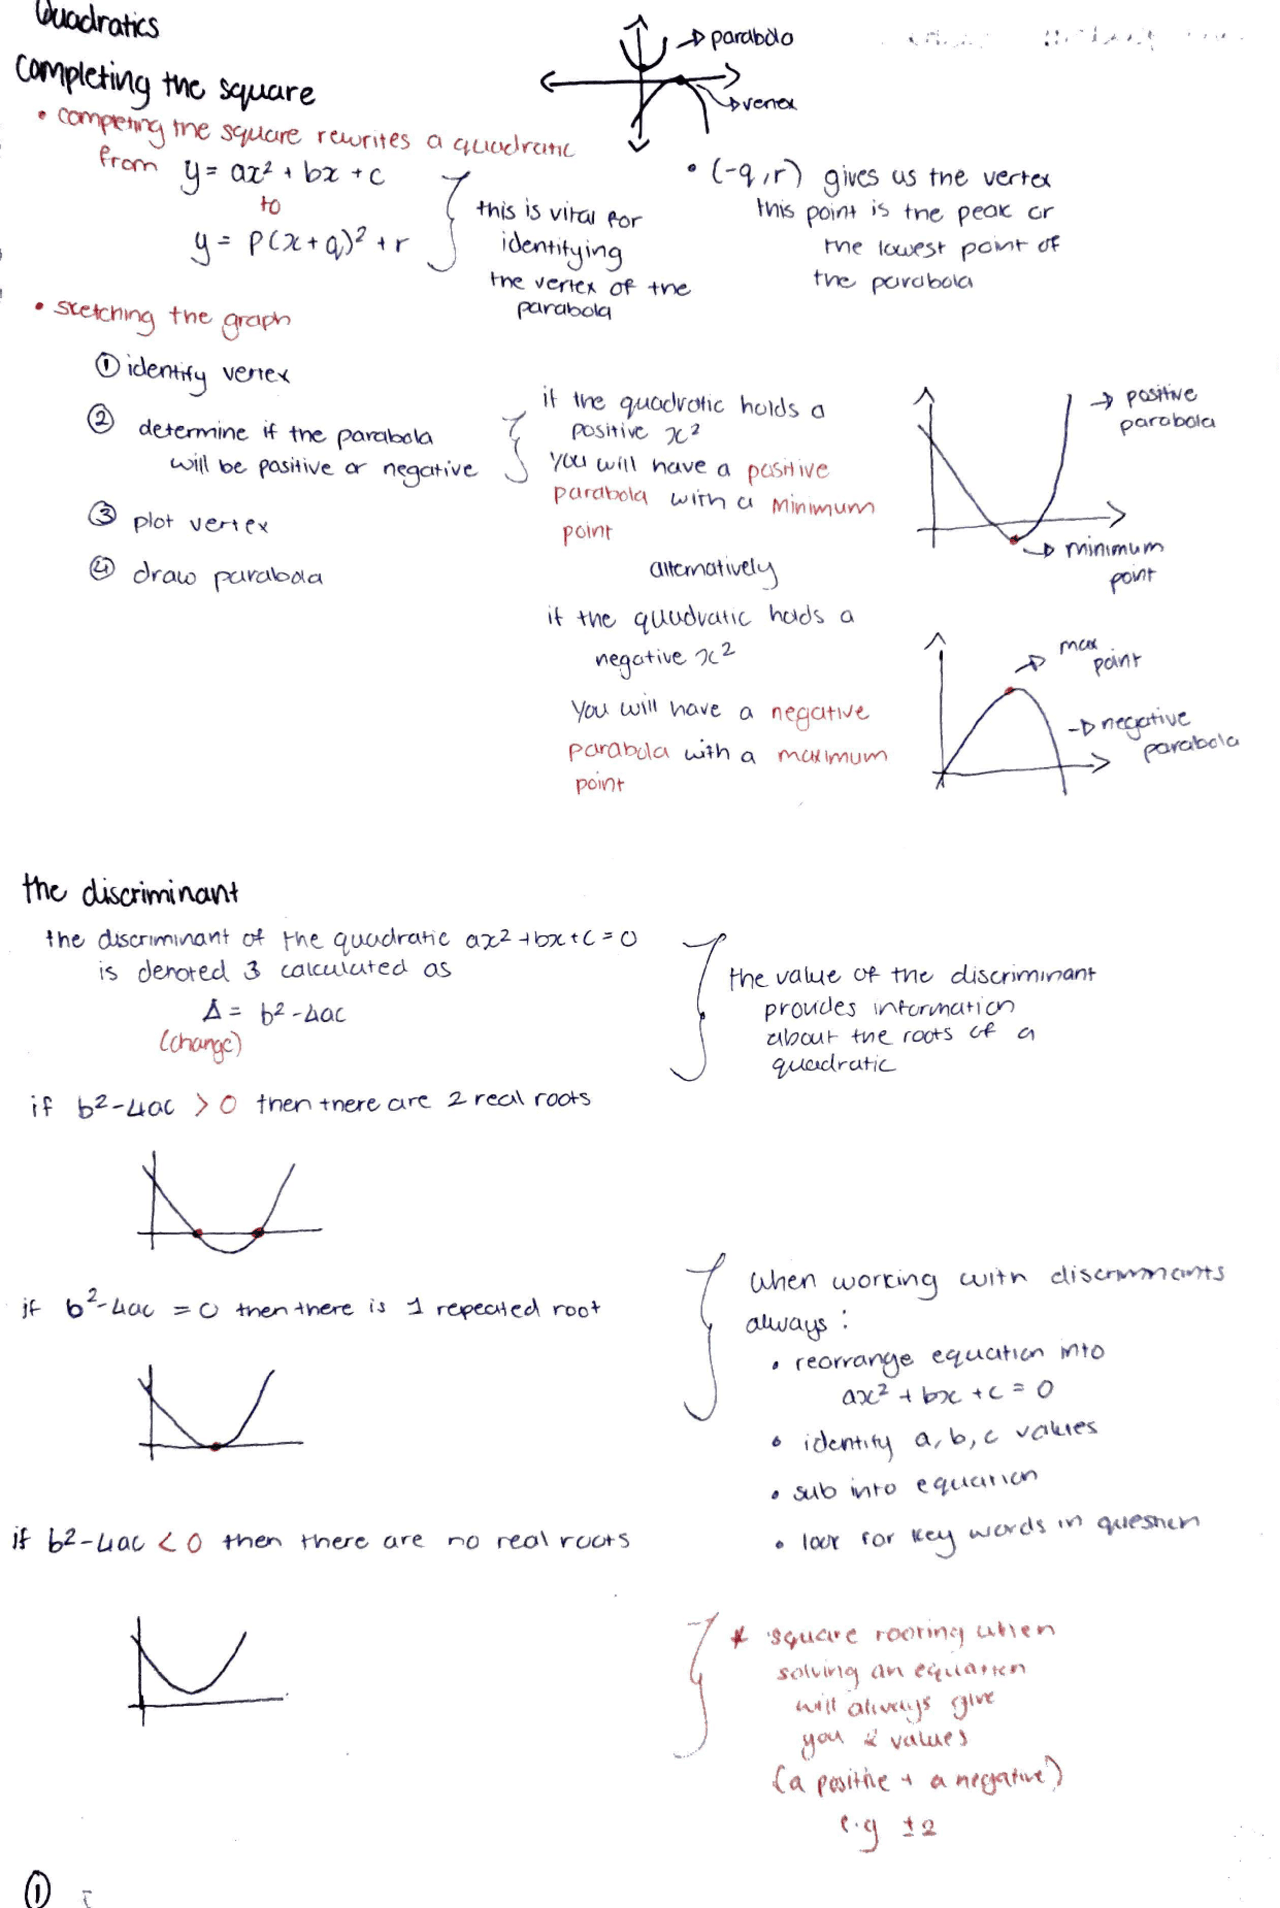 Quadratics
completing the square
→ parabola
→ vertex
• competing the square rewrites a quadratic
from y = ax² + bx + c
to
y = p(x+q)² + r
this is vital for
identifying
the vertex of the
parabola
• (-q, r) gives us the vertex
this point is the peak or
the lowest point of
the parabola
• sketching the graph
① identify vertex
② determine if the parabola
will be positive or negative
③ plot vertex
④ draw parabola
if the quadratic holds a
positive x²
you will have a positive
parabola with a minimum
point
alternatively
if the quadratic holds a
negative x²
you will have a negative
parabola with a maximum
point
→ positive
parabola
→ minimum
point
→ max
point
→ negative
parabola
the discriminant
the discriminant of the quadratic ax² + bx + c = 0
is denoted 3 calculated as
Δ = b² - 4ac
(change)
the value of the discriminant
provides information
about the roots of a
quadratic
if b² - 4ac > 0 then there are 2 real roots
if b² - 4ac = 0 then there is 1 repeated root
if b² - 4ac < 0 then there are no real roots
when working with discriminants
always :
• rearrange equation into
ax² + bx + c = 0
• identify a, b, c values
• sub into equation
• look for key words in question
* square rooting when
solving an equation
will always give
you 2 values
(a positive + a negative)
e.g ±2
①